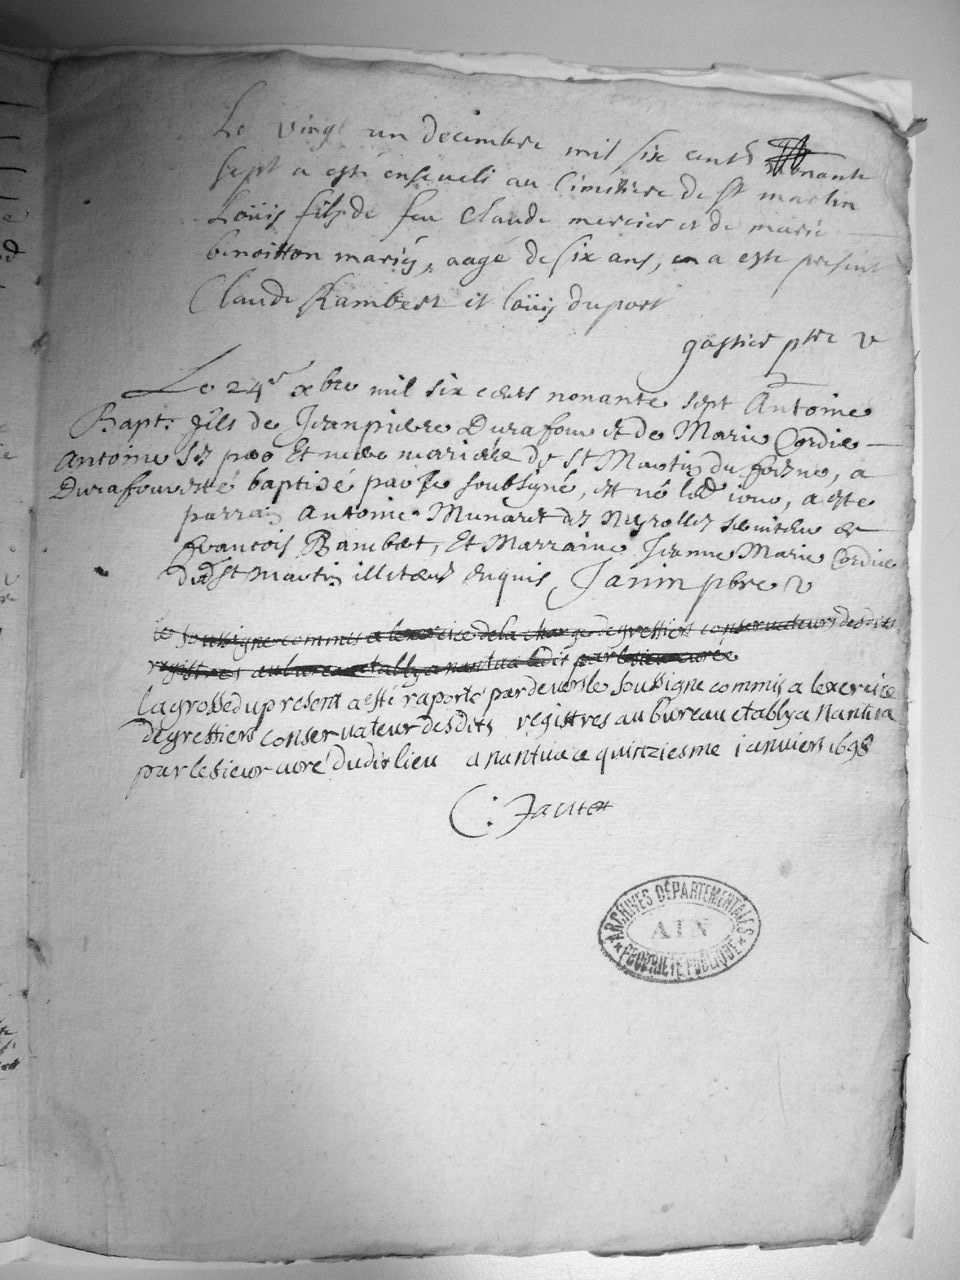 Le vingt un decembre mil six cents nonante
sept a esté enseveli au Cimistiere de st martin
Loüis fils de feu Claude mercier et de marie
benoitton mariés, aagé de six ans, en a este present
Claude Rambert et loüis duport
gastier ptre v
Le 24e xbre mil six cents nonante sept Antoine
Bapt. fils de Jeanpierre Durafour et de Marie Cordie
Antoine ses pere Et mere mariés de st Martin du fresne, a
Durafour esté baptisé par le soubsigné, est né led jour, a este
parrain Antoine Munaret des Neyrolles
francois Rambert, Et Marraine Jeanne Marie Cordie
dud st Martin illiteres enquis Janin pbre v
le soussigne commis a lexercice de la charge de greffiers conservateurs desdits
registres au bureau etably a nantua ledit par le sieur curé
la grosse du present a esté raporté pardevers le soussigne commis a lexercice
de greffiers conservateur desdits registres au bureau etably a Nantua
par le sieur curé dudit lieu a nantua ce quinziesme janviers 1698
ARCHIVES DÉPARTEMENTALES
AIN
PROPRIÉTÉ PUBLIQUE